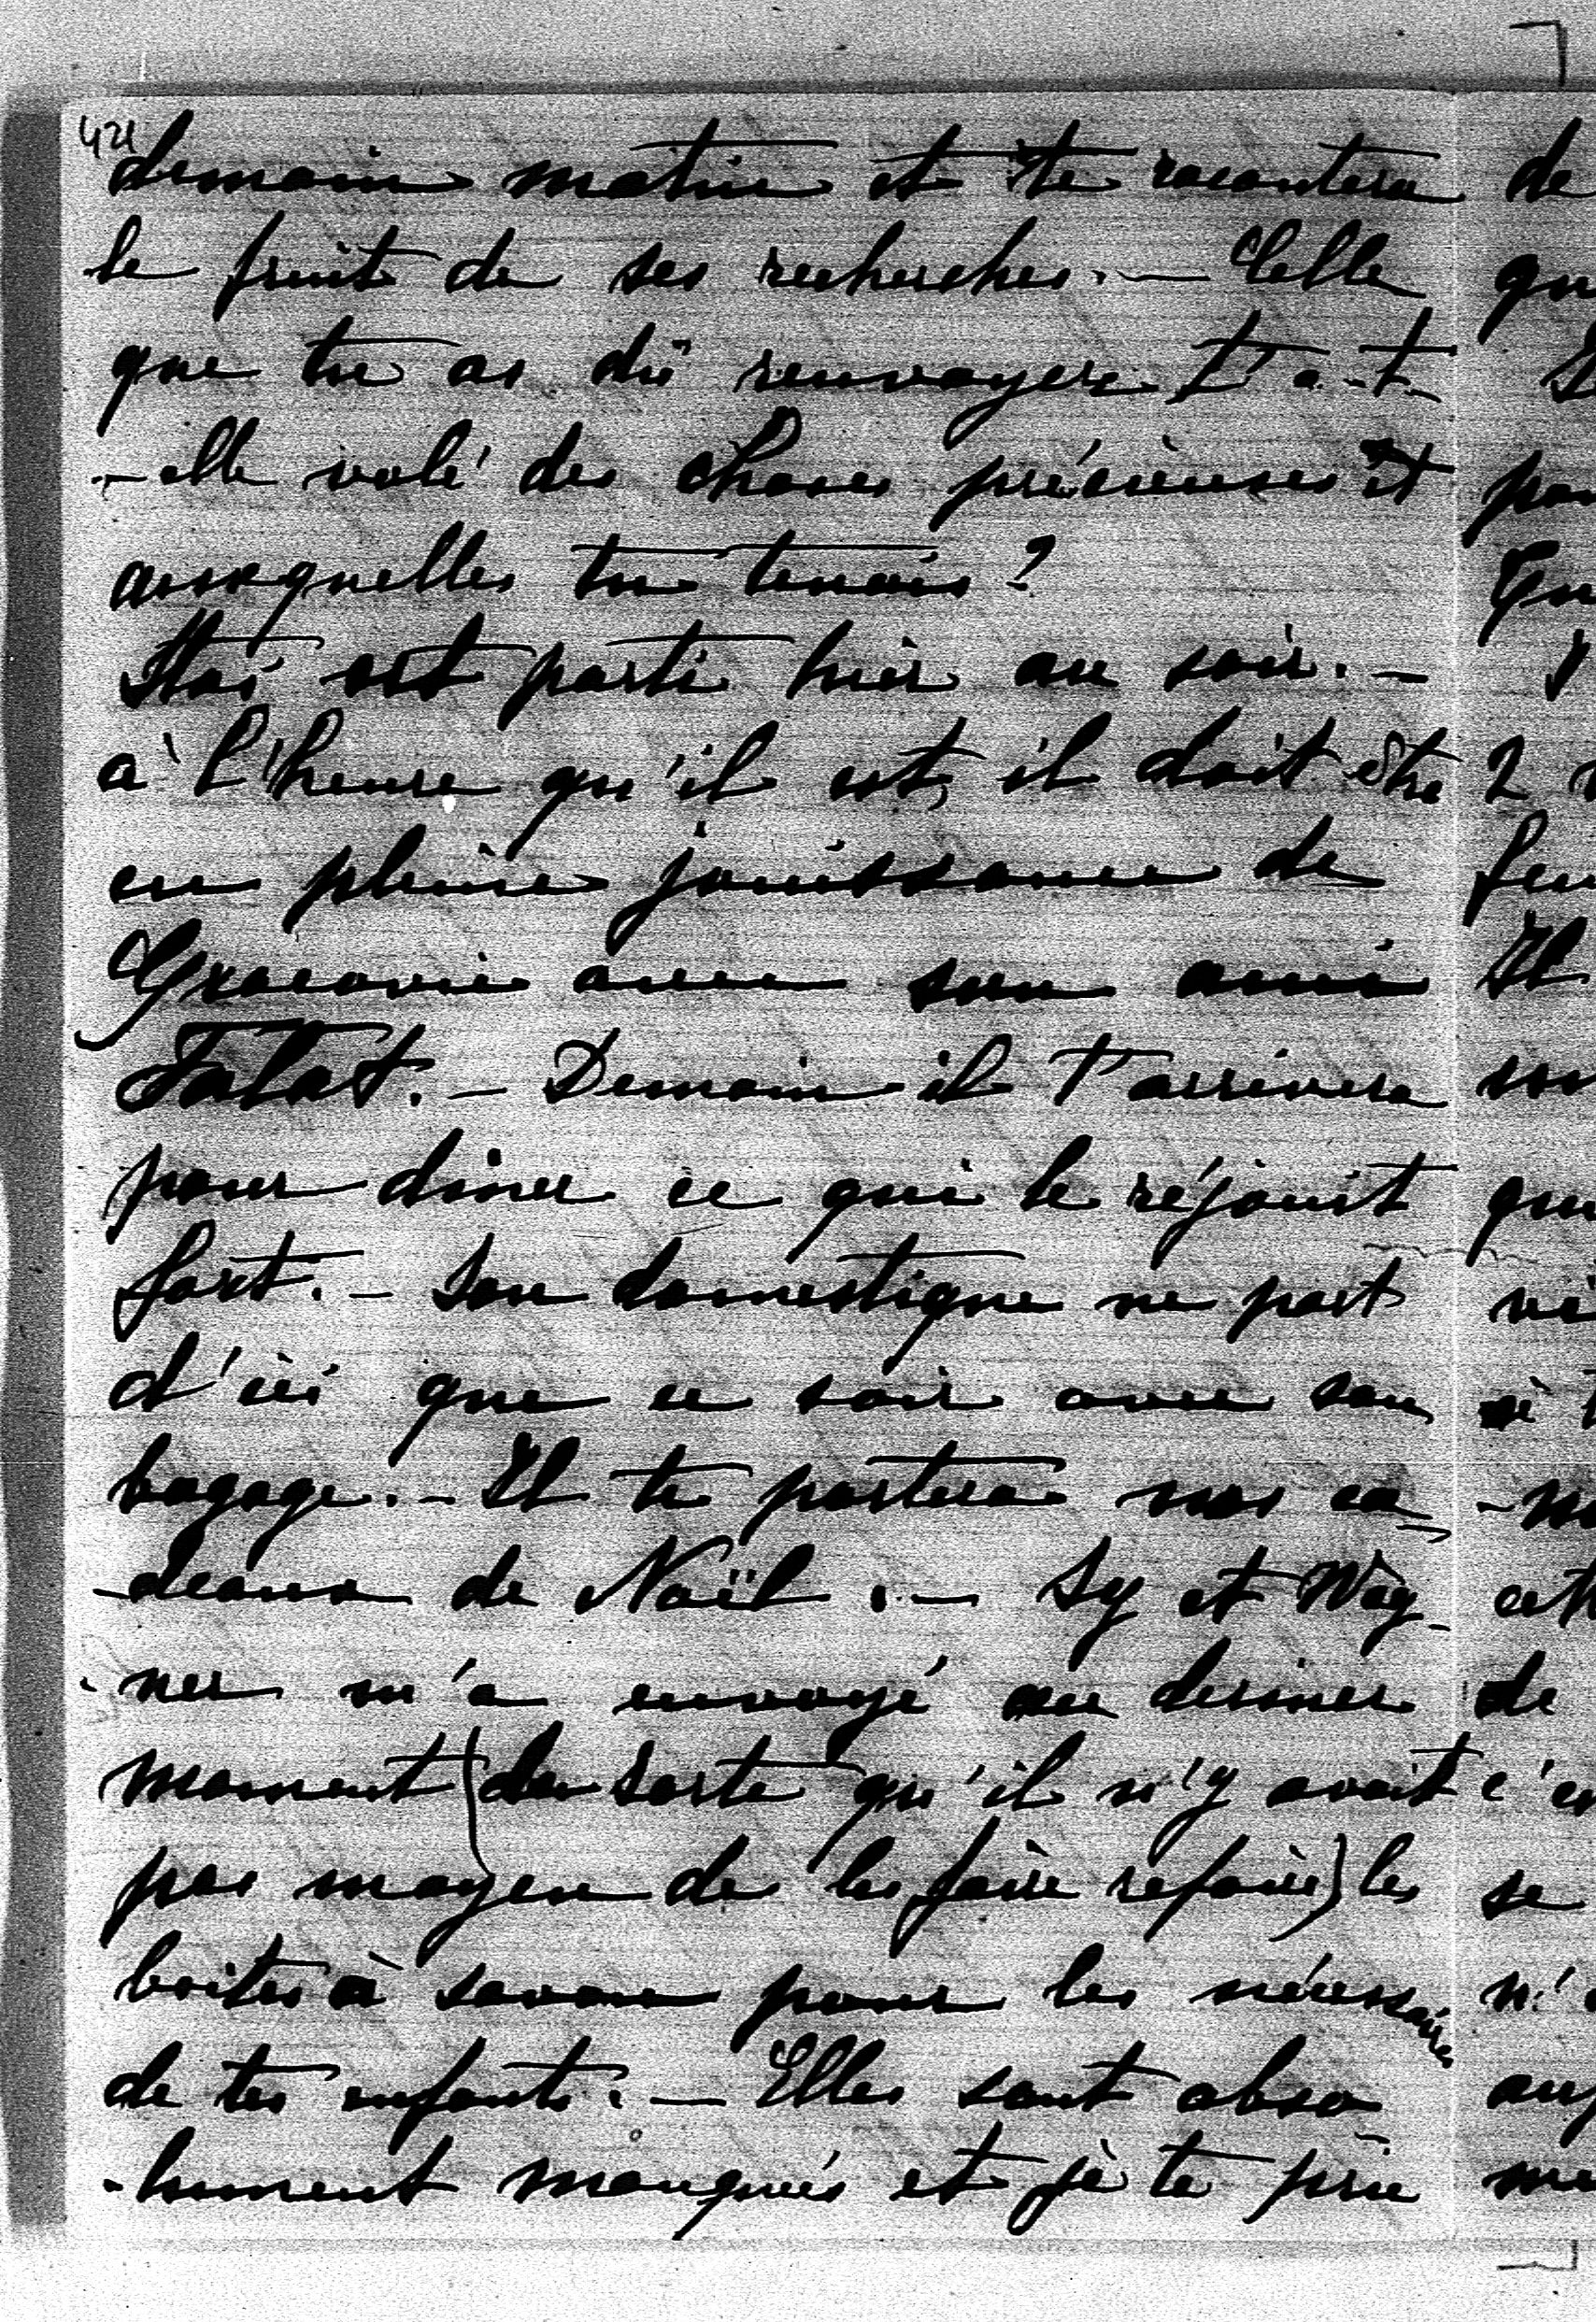 421
demain matin et te racontera
le fruit de ses recherches. — Celle
que tu as dû renvoyer t'a-t-
-elle volé des choses précieuses et
auxquelles tu tenais ?
est parti hier au soir. —
à l'heure qu'il est, il doit être
en pleine jouissance de
Cracovie avec son ami
Falat. — Demain il t'arrivera
pour diner ce qui le réjouit
fort. — Son domestique ne part
d'ici que ce soir avec son
bagage. — Il te portera nos ca-
-deaux de Noël. — Sy et Wag-
-ner m'a envoyé au dernier
moment (de sorte qu'il n'y avait
pas moyen de les faire refaire) les
boites à savon pour les nécessaires
de tes enfants. — Elles sont abso-
-lument manqués et je te prie